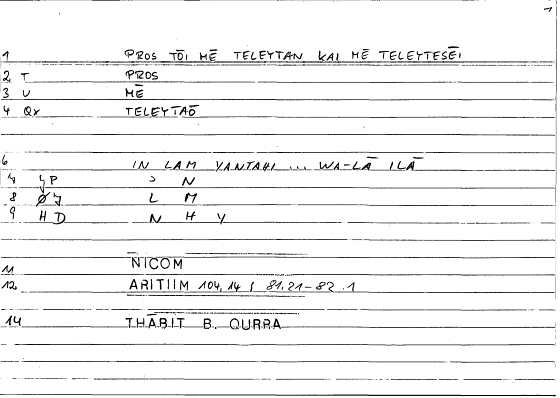 1
1 PROS TŌI MĒ TELEYTAN KAI MĒ TELEYTESĒI
2 T PROS
3 U MĒ
4 Qx TELEYTAŌ
6 IN LAM YANTAHI ... WA-LĀ ILĀ
P Ɔ N
8 L M
9 H D N H Y
11 NICOM
12 ARITIIM 104,14 ; 81.21-82.1
14 THĀBIT B. QURRA